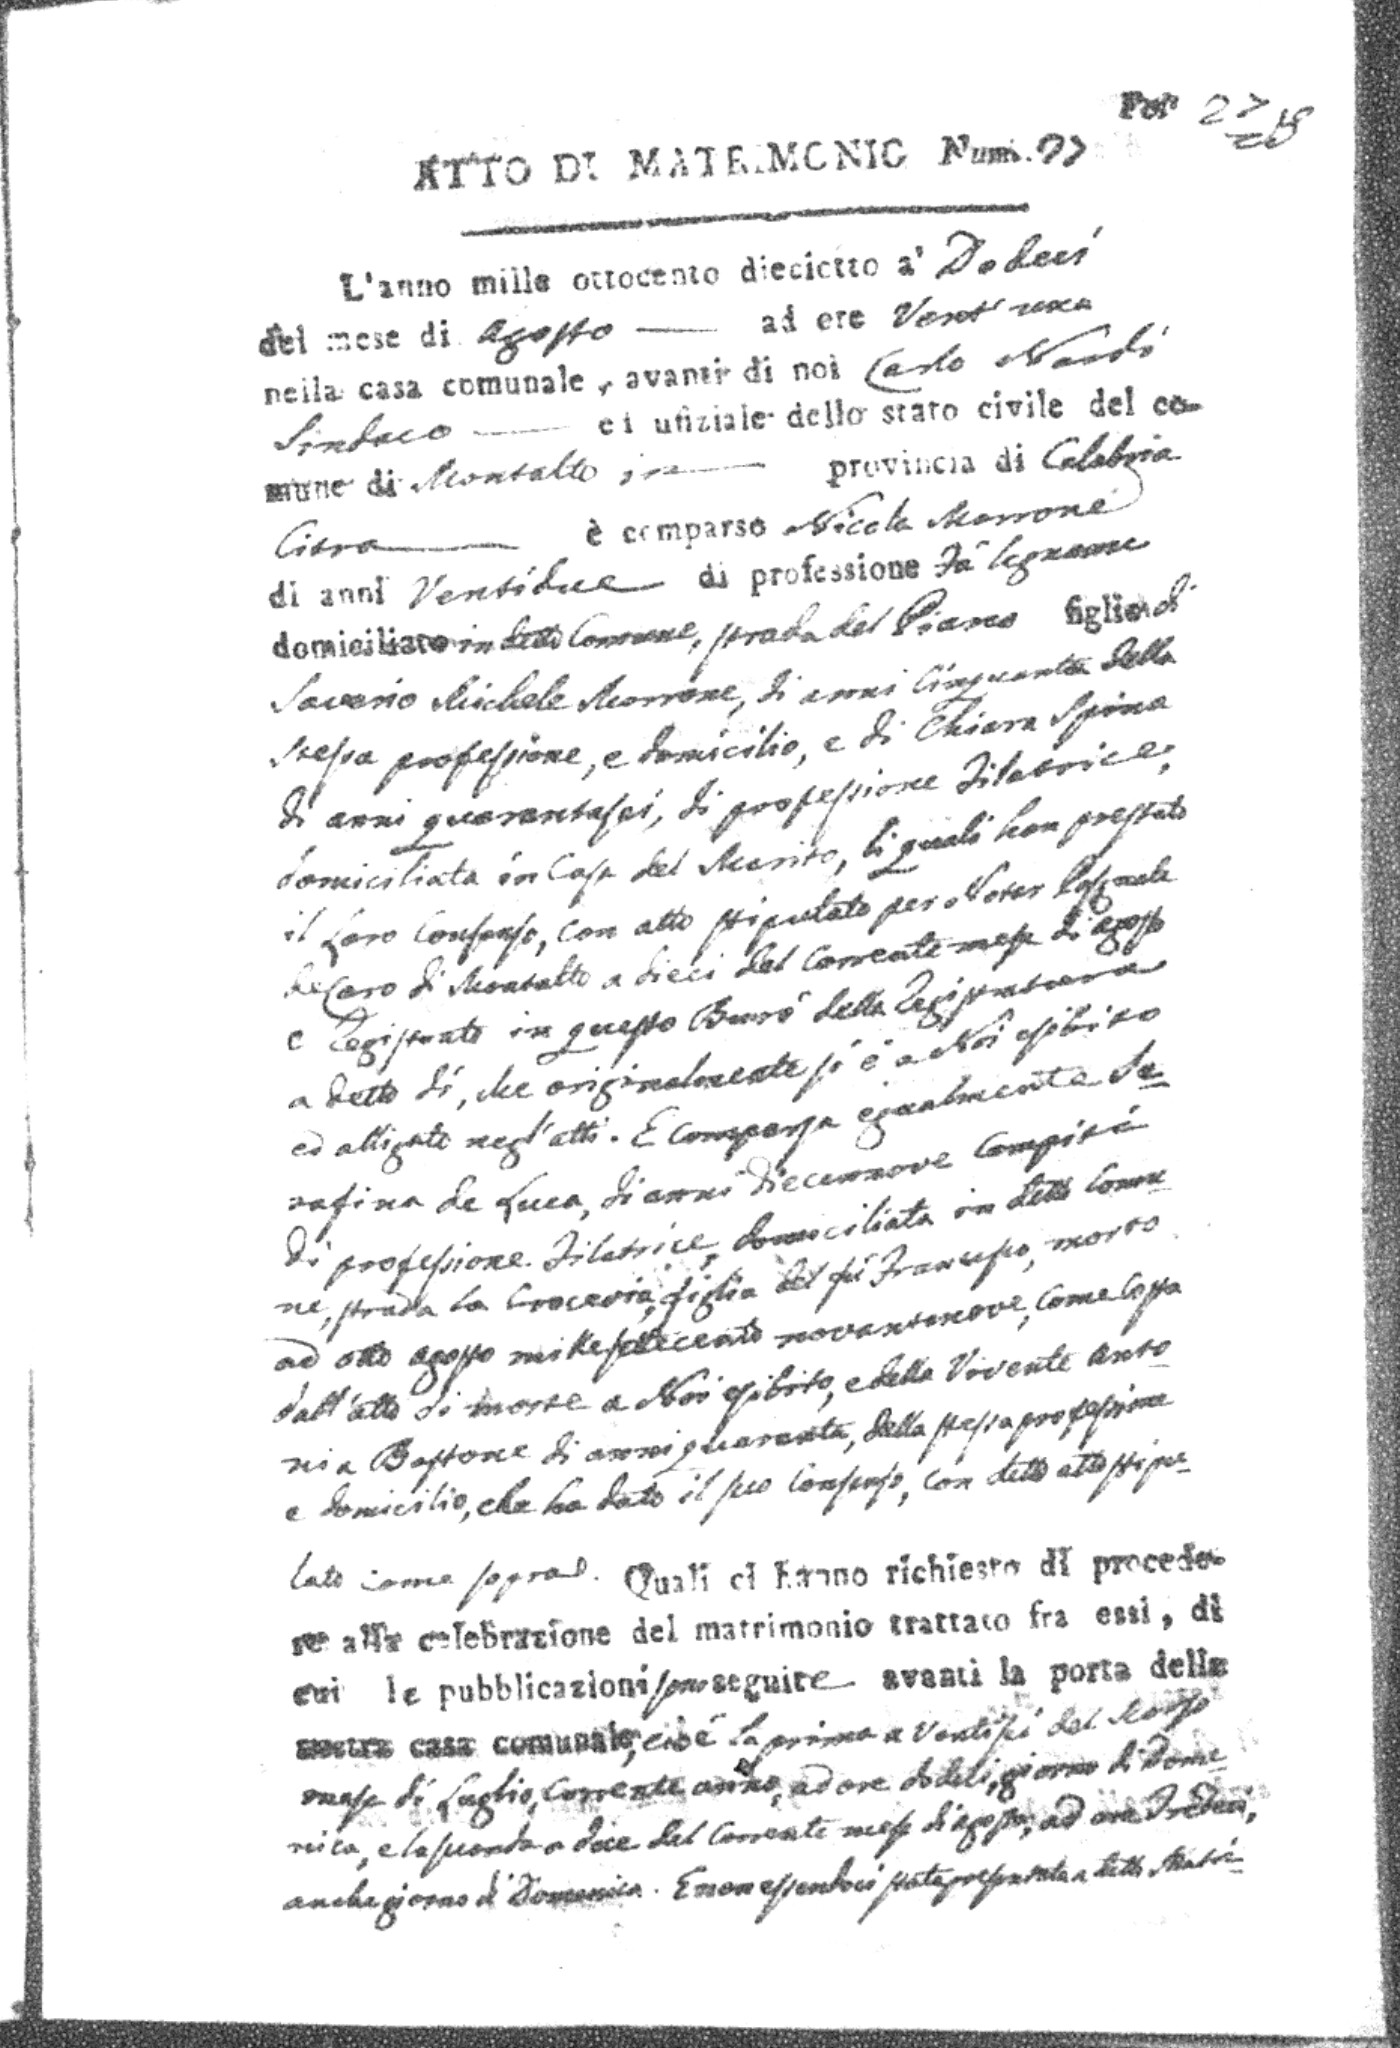 Fol 27
28
ATTO DI MATRIMONIO Num. 27
L'anno mille ottocento dieciotto a' Dodeci
del mese di Agosto ad ore Vent'una
nella casa comunale, avanti di noi Carlo Nardi
Sindaco ed ufiziale dello stato civile del co-
mune di Montalto in provincia di Calabria
Citra è comparso Nicola Morrone
di anni Ventidue di professione Fa legname
domiciliato in detto Comune, strada del Piano figlio di
Saverio Michele Morrone, di anni Cinquanta della
stessa professione, e domicilio, e di Chiara Spina
di anni quarantasei, di professione Filatrice,
domiciliata in Casa del Marito, li quali han prestato
il Loro Consenso, con atto stipulato per Notar Pasquale
de Caro di Montalto a dieci del Corrente mese di Agosto
e Registrato in questo Burò della Registratura
a detto dì, che originalmente si è a Noi esibito
ed alligato negl'atti. E Comparsa egualmente Se-
rafina de Luca, di anni diecennove Compiti
di professione Filatrice, domiciliata in detto Comu-
ne, strada la Crocevia, figlia del fù Francesco, morto
ad otto Agosto millesettecento novantanove, Come Costa
dall'atto di morte a Noi esibito, e della Vivente Anto-
nia Bastone di anni quaranta, della stessa professione
e domicilio, che ha dato il suo Consenso, con detto atto stipu-
lato come sopra. Quali ci hanno richiesto di procede-
re alla celebrazione del matrimonio trattato fra essi, di
cui le pubblicazioni sono seguite avanti la porta della
nostra casa comunale, cioè la prima a Ventisei del Scorso
mese di Luglio, Corrente anno, ad ore dodeci, giorno di Dome-
nica, e la seconda a due del Corrente mese d'Agosto, ad ore Tredeci,
anche giorno di Domenica. E non essendoci stata presentata a detto Matri-